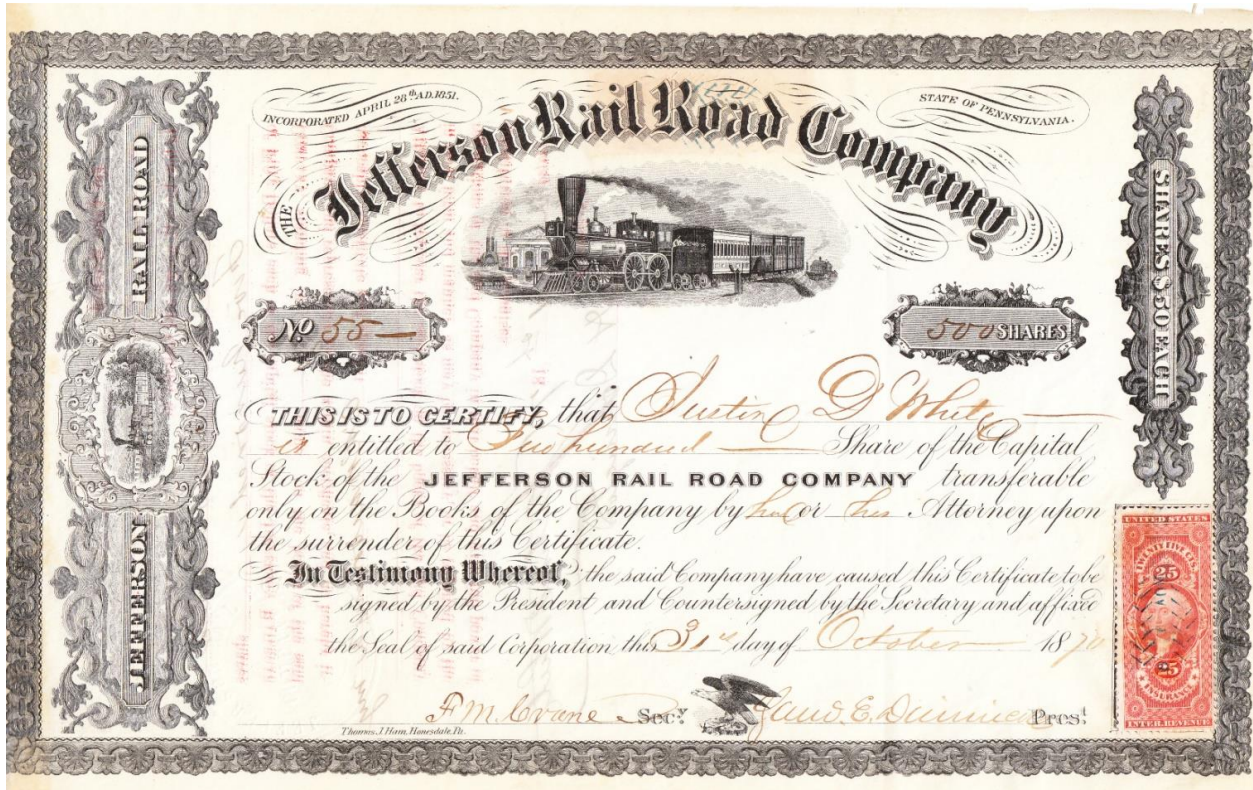 INCORPORATED APRIL 28th A.D. 1851.
STATE OF PENNSYLVANIA.
THE
Jefferson Rail Road Company
JEFFERSON RAIL ROAD
SHARES $50 EACH
No 55
500 SHARES
THIS IS TO CERTIFY, that Justin D White
is entitled to hundred Share of the Capital
Stock of the JEFFERSON RAIL ROAD COMPANY transferable
only on the Books of the Company by him or his Attorney upon
the surrender of this Certificate.
In Testimony Whereof, the said Company have caused this Certificate to be
signed by the President and Countersigned by the Secretary and affixed
the Seal of said Corporation this 31st day of October 1870
F. M. Crane Secy
E. Pres.t
Thomas J Ham, Honesdale, Pa.
UNITED STATES
TWENTY FIVE CTS.
25
25
INSURANCE
INTER. REVENUE